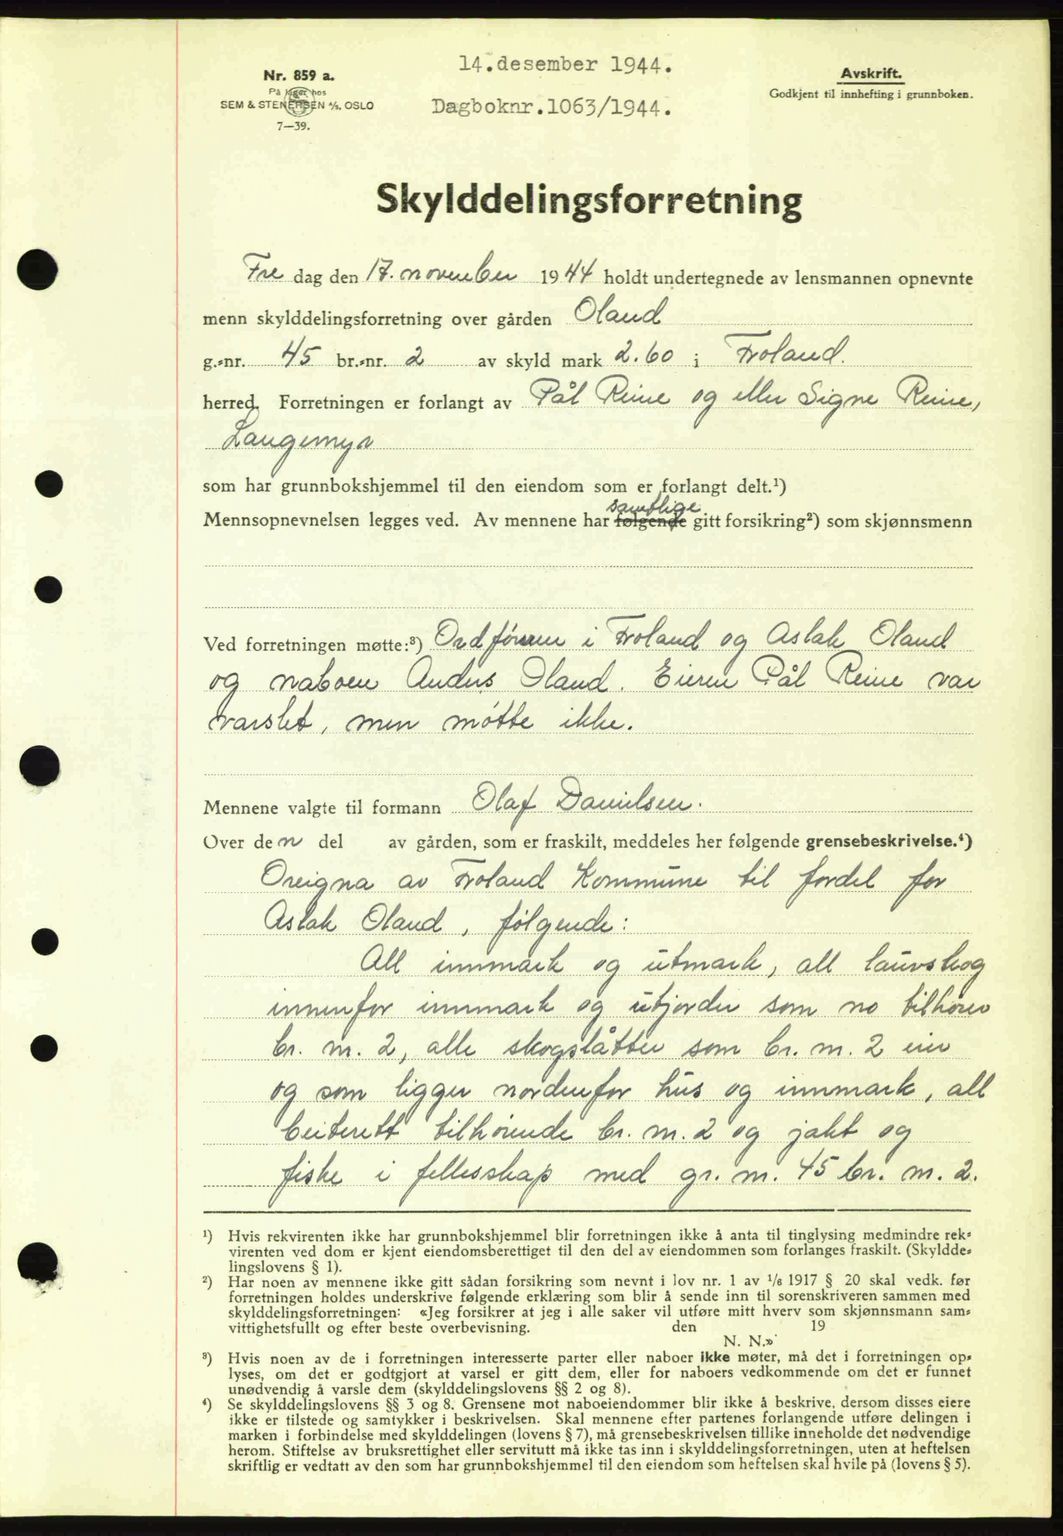 14.desember 1944.
Nr. 859 a.
På lager hos
SEM & STENERSEN A/S, OSLO
7—39.
Dagboknr.1063/1944.
Avskrift.
Godkjent til innhefting i grunnboken.
Skylddelingsforretning
Fre dag den 17. november 1944 holdt undertegnede av lensmannen opnevnte
menn skylddelingsforretning over gården Oland
g.-nr. 45 br.-nr. 2 av skyld mark 2.60 i Froland.
herred. Forretningen er forlangt av Pål Reine og eller Signe Reine,
Langemyr
som har grunnbokshjemmel til den eiendom som er forlangt delt.¹)
samtlige
Mennsopnevnelsen legges ved. Av mennene har følgende gitt forsikring²) som skjønnsmenn
Ved forretningen møtte:³) Ordføreren i Froland og Aslak Oland
og naboen Anders Oland. Eieren Pål Reine var
varslet, men møtte ikke.
Mennene valgte til formann Olaf Danielsen.
Over den del av gården, som er fraskilt, meddeles her følgende grensebeskrivelse.⁴)
Oreigna av Froland Kommune til fordel for
Aslak Oland, følgende:
All innmark og utmark, all lauvskog
innenfor innmark og utjorder som no tilhører
br. nr. 2, alle skogslåtter som br. nr. 2 eier
og som ligger nordenfor hus og innmark, all
beiterett tilhørende br. nr. 2 og jakt og
fiske i fellesskap med gr. nr. 45 br. nr. 2.
¹) Hvis rekvirenten ikke har grunnbokshjemmel blir forretningen ikke å anta til tinglysing medmindre rek-
virenten ved dom er kjent eiendomsberettiget til den del av eiendommen som forlanges fraskilt. (Skyldde-
lingslovens § 1).
²) Har noen av mennene ikke gitt sådan forsikring som nevnt i lov nr. 1 av 1/6 1917 § 20 skal vedk. før
forretningen holdes underskrive følgende erklæring som blir å sende inn til sorenskriveren sammen med
skylddelingsforretningen: «Jeg forsikrer at jeg i alle saker vil utføre mitt hverv som skjønnsmann sam-
vittighetsfullt og efter beste overbevisning. den 19
N. N.»
³) Hvis noen av de i forretningen interesserte parter eller naboer ikke møter, må det i forretningen op-
lyses, om det er godtgjort at varsel er gitt dem, eller for naboers vedkommende om det er funnet
unødvendig å varsle dem (skylddelingslovens §§ 2 og 8).
⁴) Se skylddelingslovens §§ 3 og 8. Grensene mot naboeiendommer blir ikke å beskrive, dersom disses eiere
ikke er tilstede og samtykker i beskrivelsen. Skal mennene efter partenes forlangende utføre delingen i
marken i forbindelse med skylddelingen (lovens § 7), må grensebeskrivelsen tillike inneholde det nødvendige
herom. Stiftelse av bruksrettighet eller servitutt må ikke tas inn i skylddelingsforretningen, uten at heftelsen
skriftlig er vedtatt av den som har grunnbokshjemmel til den eiendom som heftelsen skal hvile på (lovens § 5).